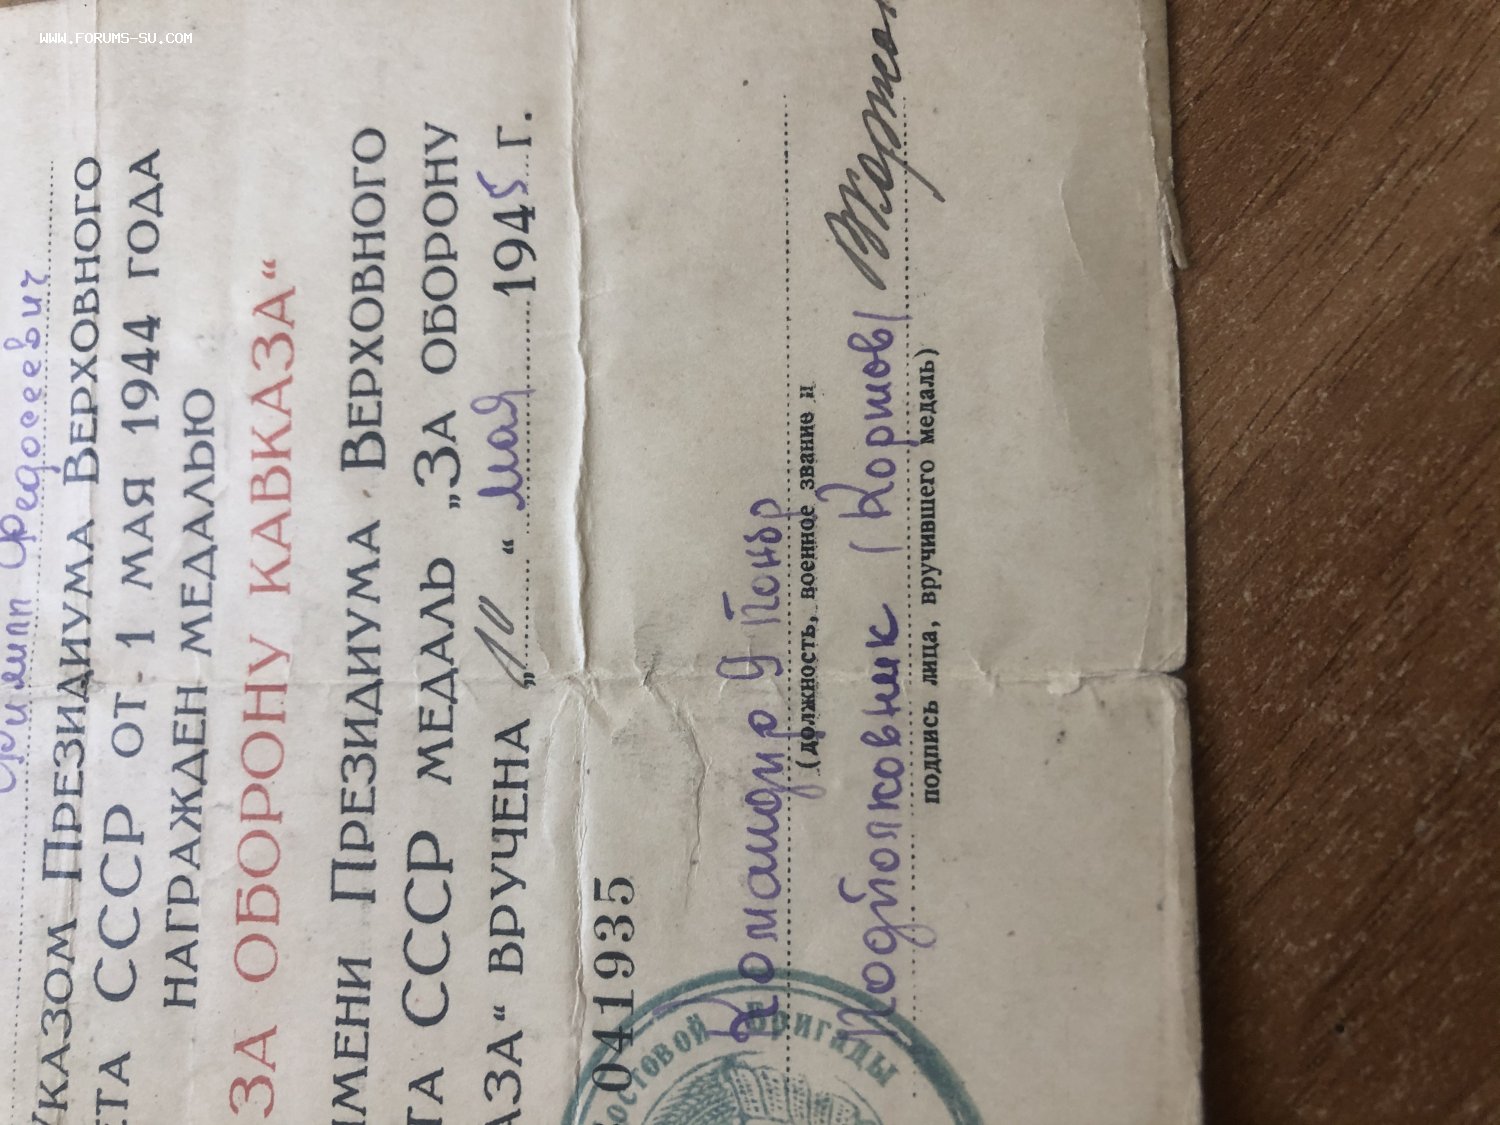 WWW.FORUMS-SU.COM
Филипп Федосеевич
УКАЗОМ ПРЕЗИДИУМА ВЕРХОВНОГО
ЕТА СССР ОТ 1 МАЯ 1944 ГОДА
НАГРАЖДЕН МЕДАЛЬЮ
ЗА ОБОРОНУ КАВКАЗА“
ИМЕНИ ПРЕЗИДИУМА ВЕРХОВНОГО
ТА СССР МЕДАЛЬ „ЗА ОБОРОНУ
АЗА“ ВРУЧЕНА „10“ мая 1945 г.
041935
Командир 9 Понбр
(должность, военное звание и
Подполковник /Коржов/
подпись лица, вручившего медаль)
остовой бригады